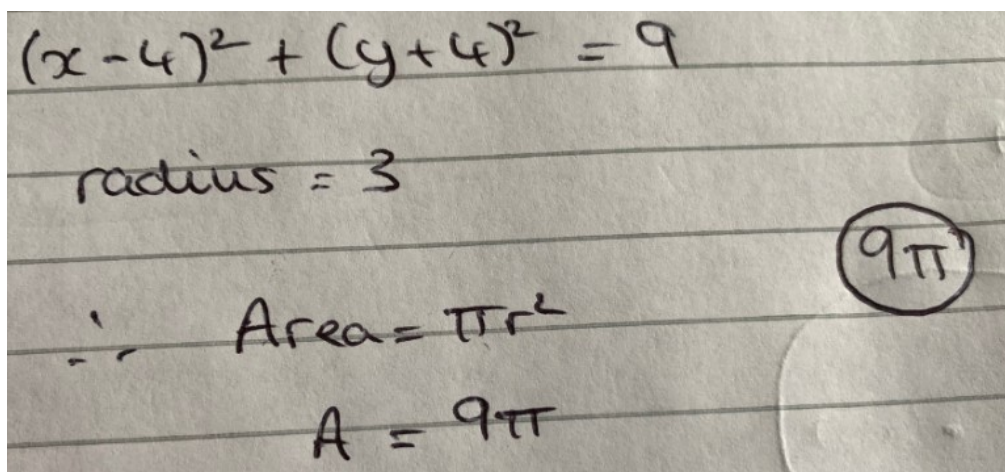 (x-4)² + (y+4)² = 9
radius = 3
9π
∴ Area = πr²
A = 9π